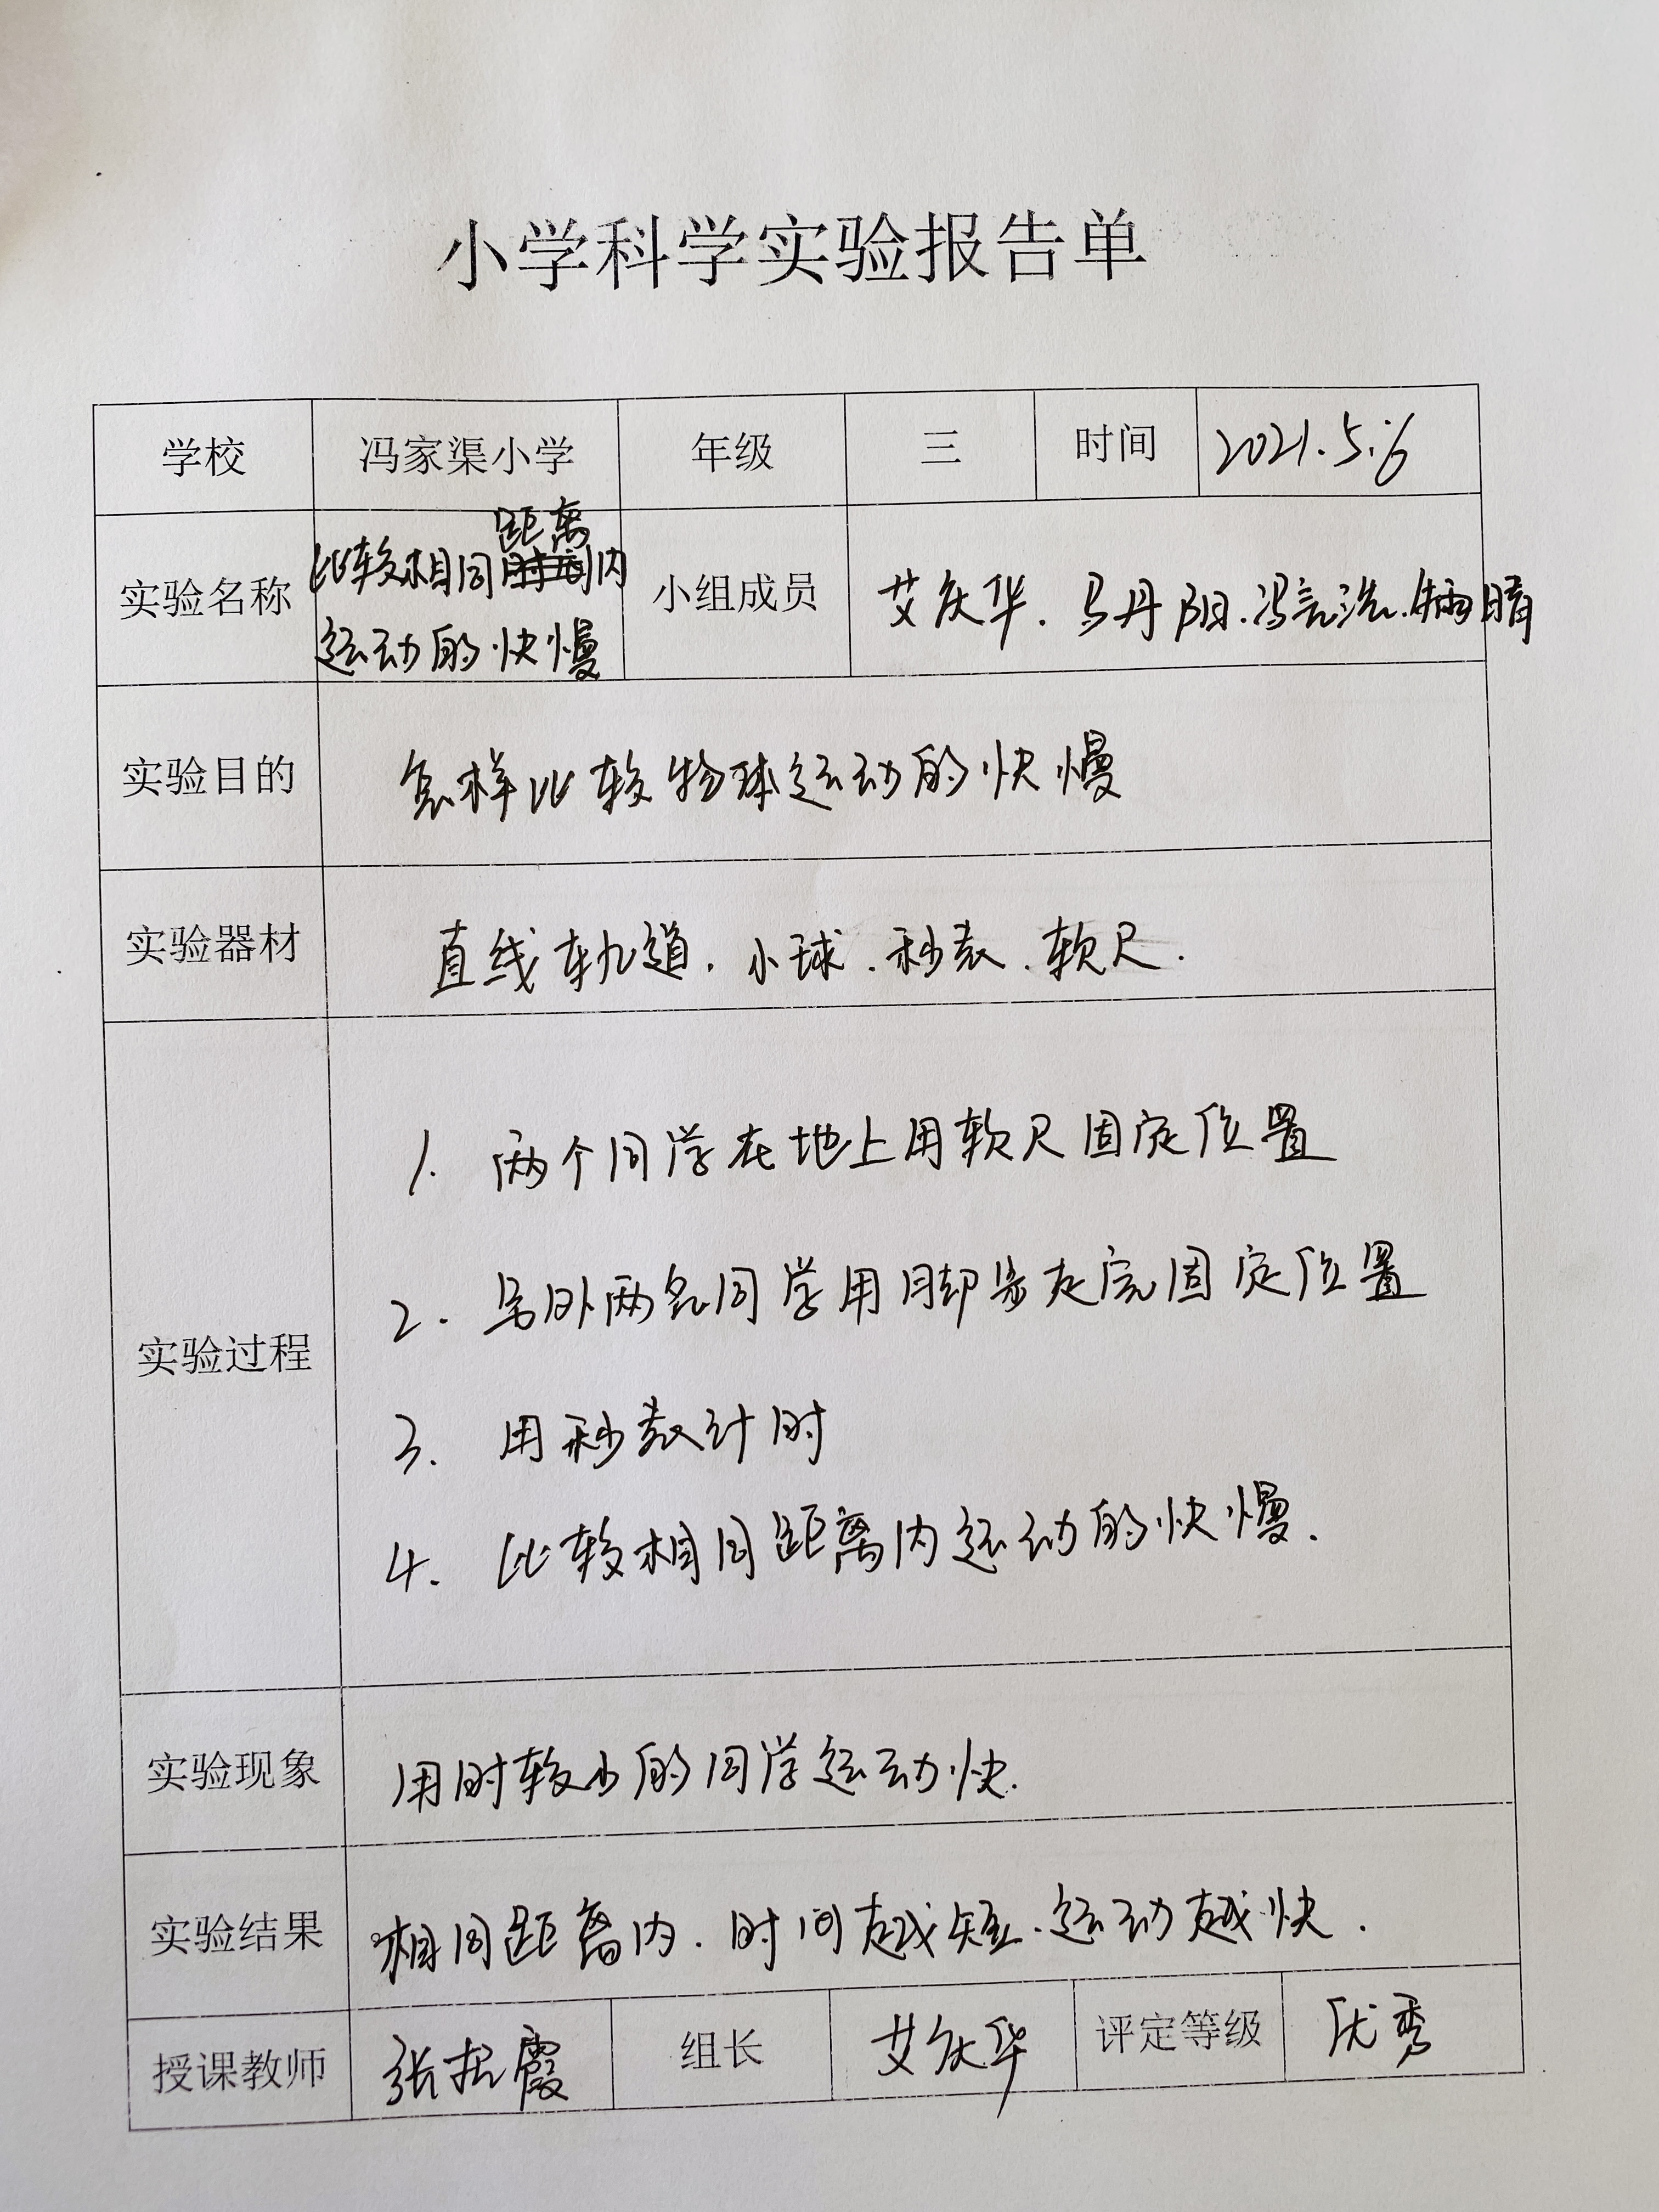 小学科学实验报告单
学校 冯家渠小学 年级 三 时间 2021.5.6
实验名称 比较相同距离内
运动的快慢
小组成员 艾庆华.马丹阳.
实验目的 怎样比较物体运动的快慢
实验器材 直线轨道.小球.秒表.软尺.
实验过程
1. 两个同学在地上用软尺固定位置
2. 另外两名同学用脚步走完固定位置
3. 用秒表计时
4. 比较相同距离内运动的快慢.
实验现象 用时较少的同学运动快.
实验结果 相同距离内.时间越短.运动越快.
授课教师 张 霞 组长 艾庆华 评定等级 优秀